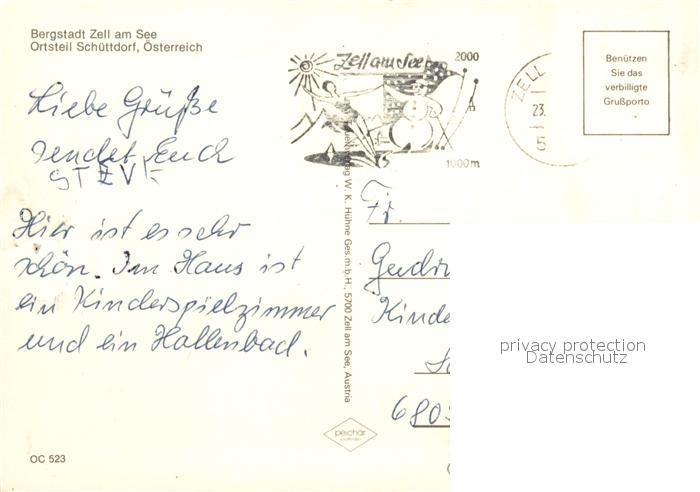 Bergstadt Zell am See
Ortsteil Schüttdorf, Österreich
Liebe Grüße
sendet Euch
STEVE
Hier ist es sehr
schön. Im Haus ist
ein Kinderspielzimmer
und ein Hallenbad.
OC 523
Zell am See
2000
1000m
ZELL
23.
5
Benützen
Sie das
verbilligte
Grußporto
W. K. Hühne Ges.m.b.H., 5700 Zell am See, Austria
peichär
Fr.
Gudru
Kinde
privacy protection
Datenschutz